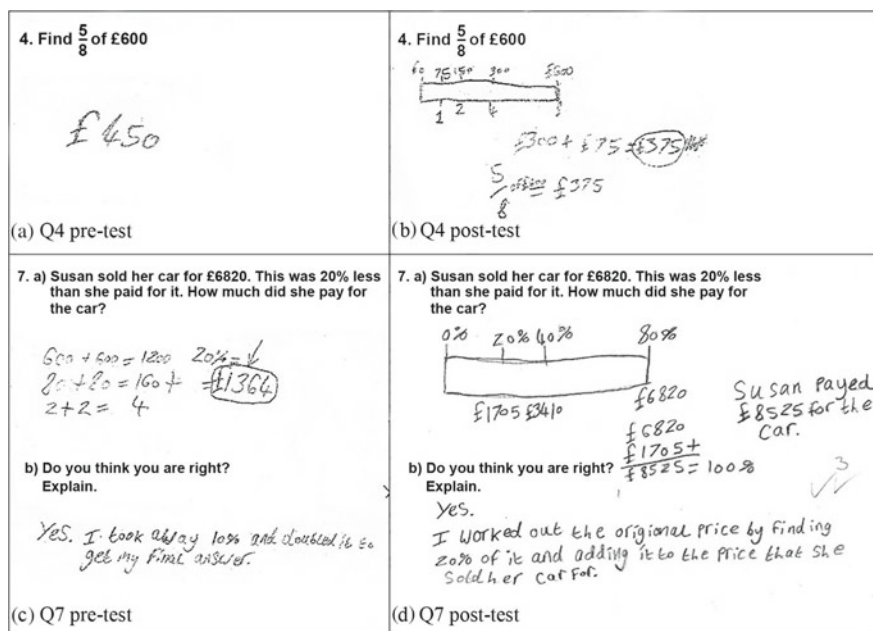 4. Find 5/8 of £600
£450
(a) Q4 pre-test
4. Find 5/8 of £600
£0 75 150 300 £600
1 2 4
£300 + £75 = £375
5/8 of £600 = £375
(b) Q4 post-test
7. a) Susan sold her car for £6820. This was 20% less
than she paid for it. How much did she pay for
the car?
600 + 600 = 1200 20% =
80 + 80 = 160 + = £1364
2 + 2 = 4
b) Do you think you are right?
Explain.
Yes. I took away 10% and doubled it to
get my final answer.
(c) Q7 pre-test
7. a) Susan sold her car for £6820. This was 20% less
than she paid for it. How much did she pay for
the car?
0% 20% 40% 80%
£1705 £3410 £6820
Susan Payed
£8525 for the
car.
£6820
£1705 +
£8525 = 100%
b) Do you think you are right?
Explain.
3
Yes.
I worked out the origional Price by finding
20% of it and adding it to the Price that she
Sold her car For.
(d) Q7 post-test